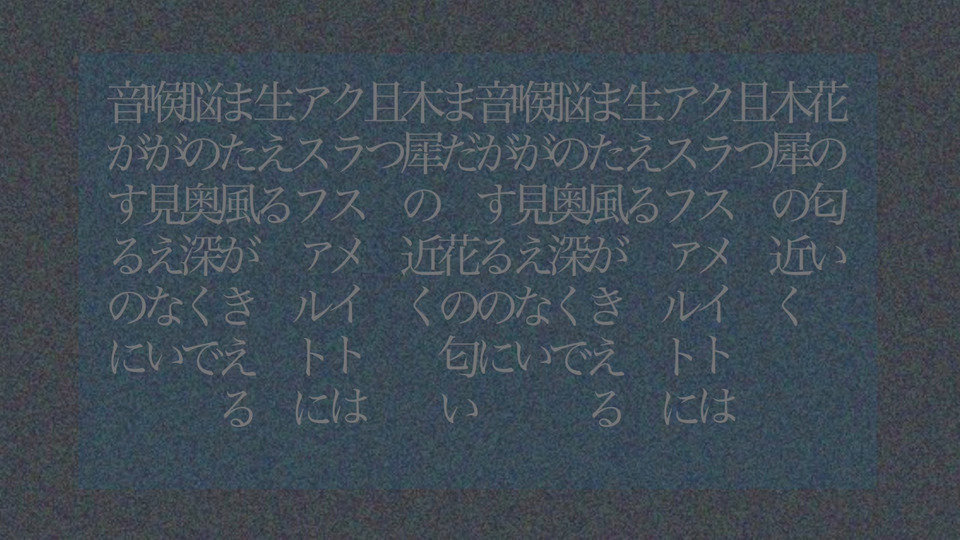 花の匂い
木犀の近く
且つ
クラスメイトは
アスファルトに
生える
また風がきえる
脳の奥深くで
喉が見えない
音がするのに
まだ　花の匂い
木犀の近く
且つ
クラスメイトは
アスファルトに
生える
また風がきえる
脳の奥深くで
喉が見えない
音がするのに